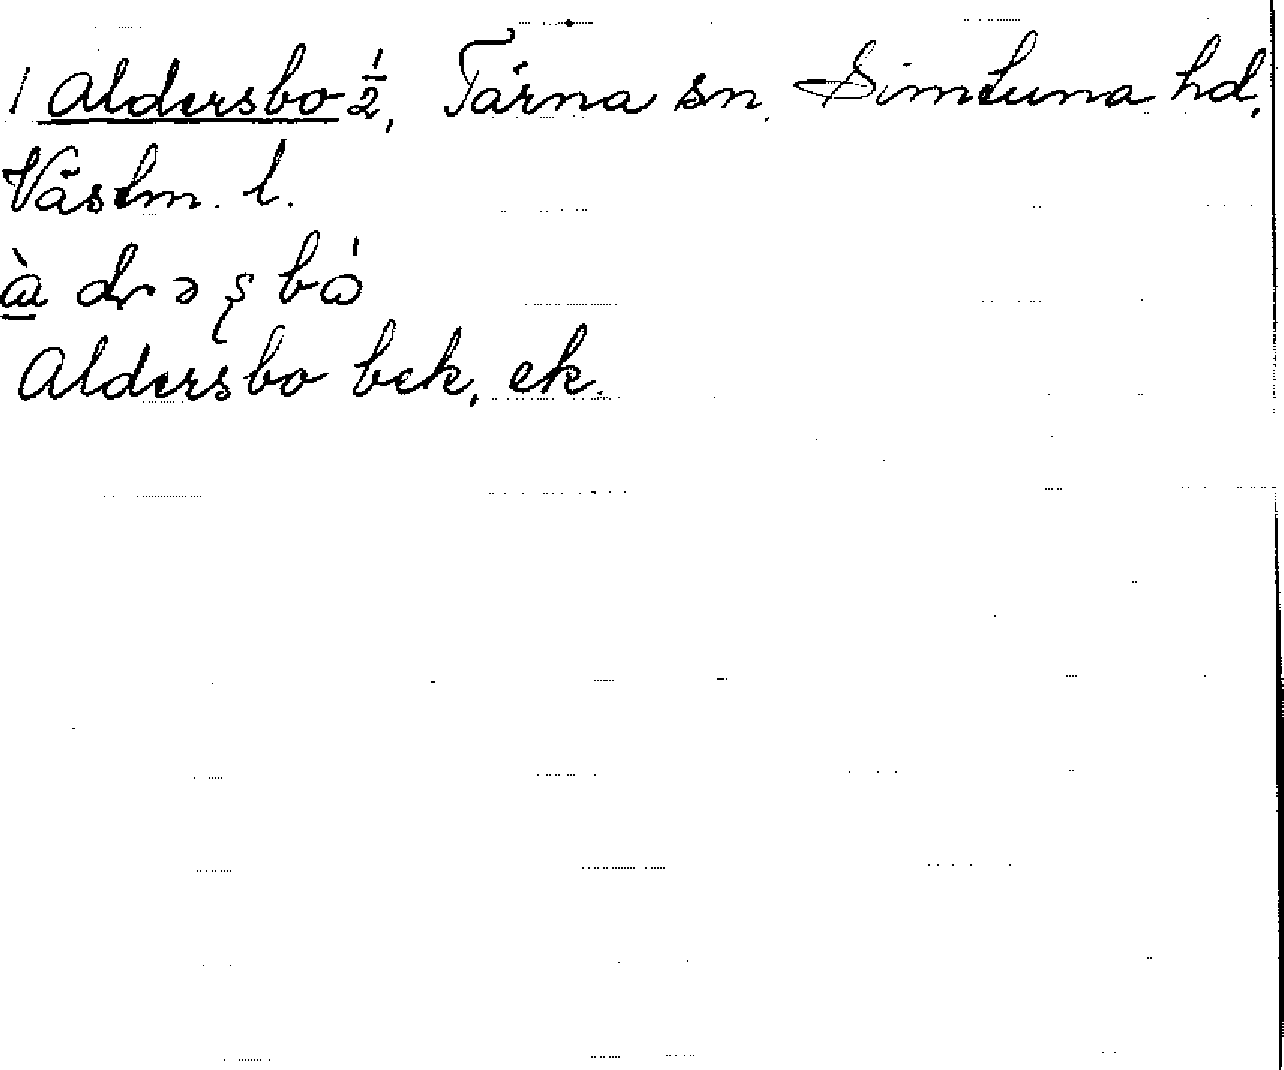 1 Aldersbo ½, Tärna sn. Simtuna hd,
Västm. l.
à dr ə ş bó
Aldersbo bek, ek.